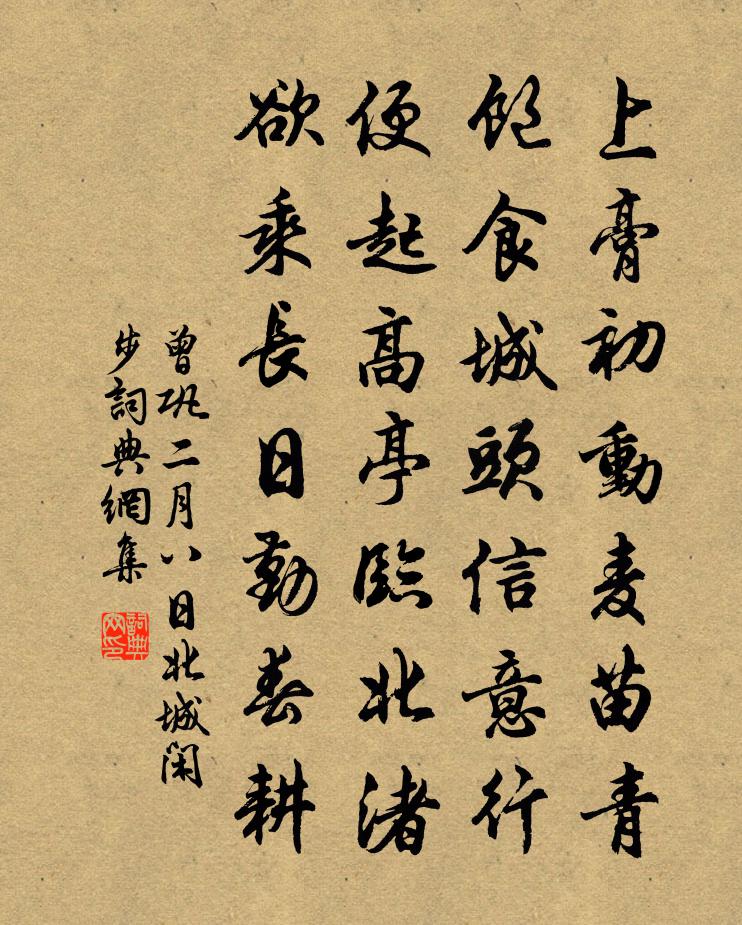 上膏初動麦苗青
飽食城頭信意行
便起高亭臨北渚
欲乘長日勤春耕
曾巩二月八日北城閑
步詞典網集
詞典
网印